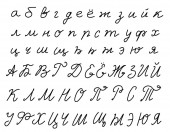 а б в г д е ё ж з и й к
л м н о п р с т у ф х
ц ч ш щ ъ ы ь э ю я
А Б В Г Д Е Ё Ж З И Й
К Л М Н О П Р С Т
У Ф Х Ц Ч Ш Щ Э Ю Я